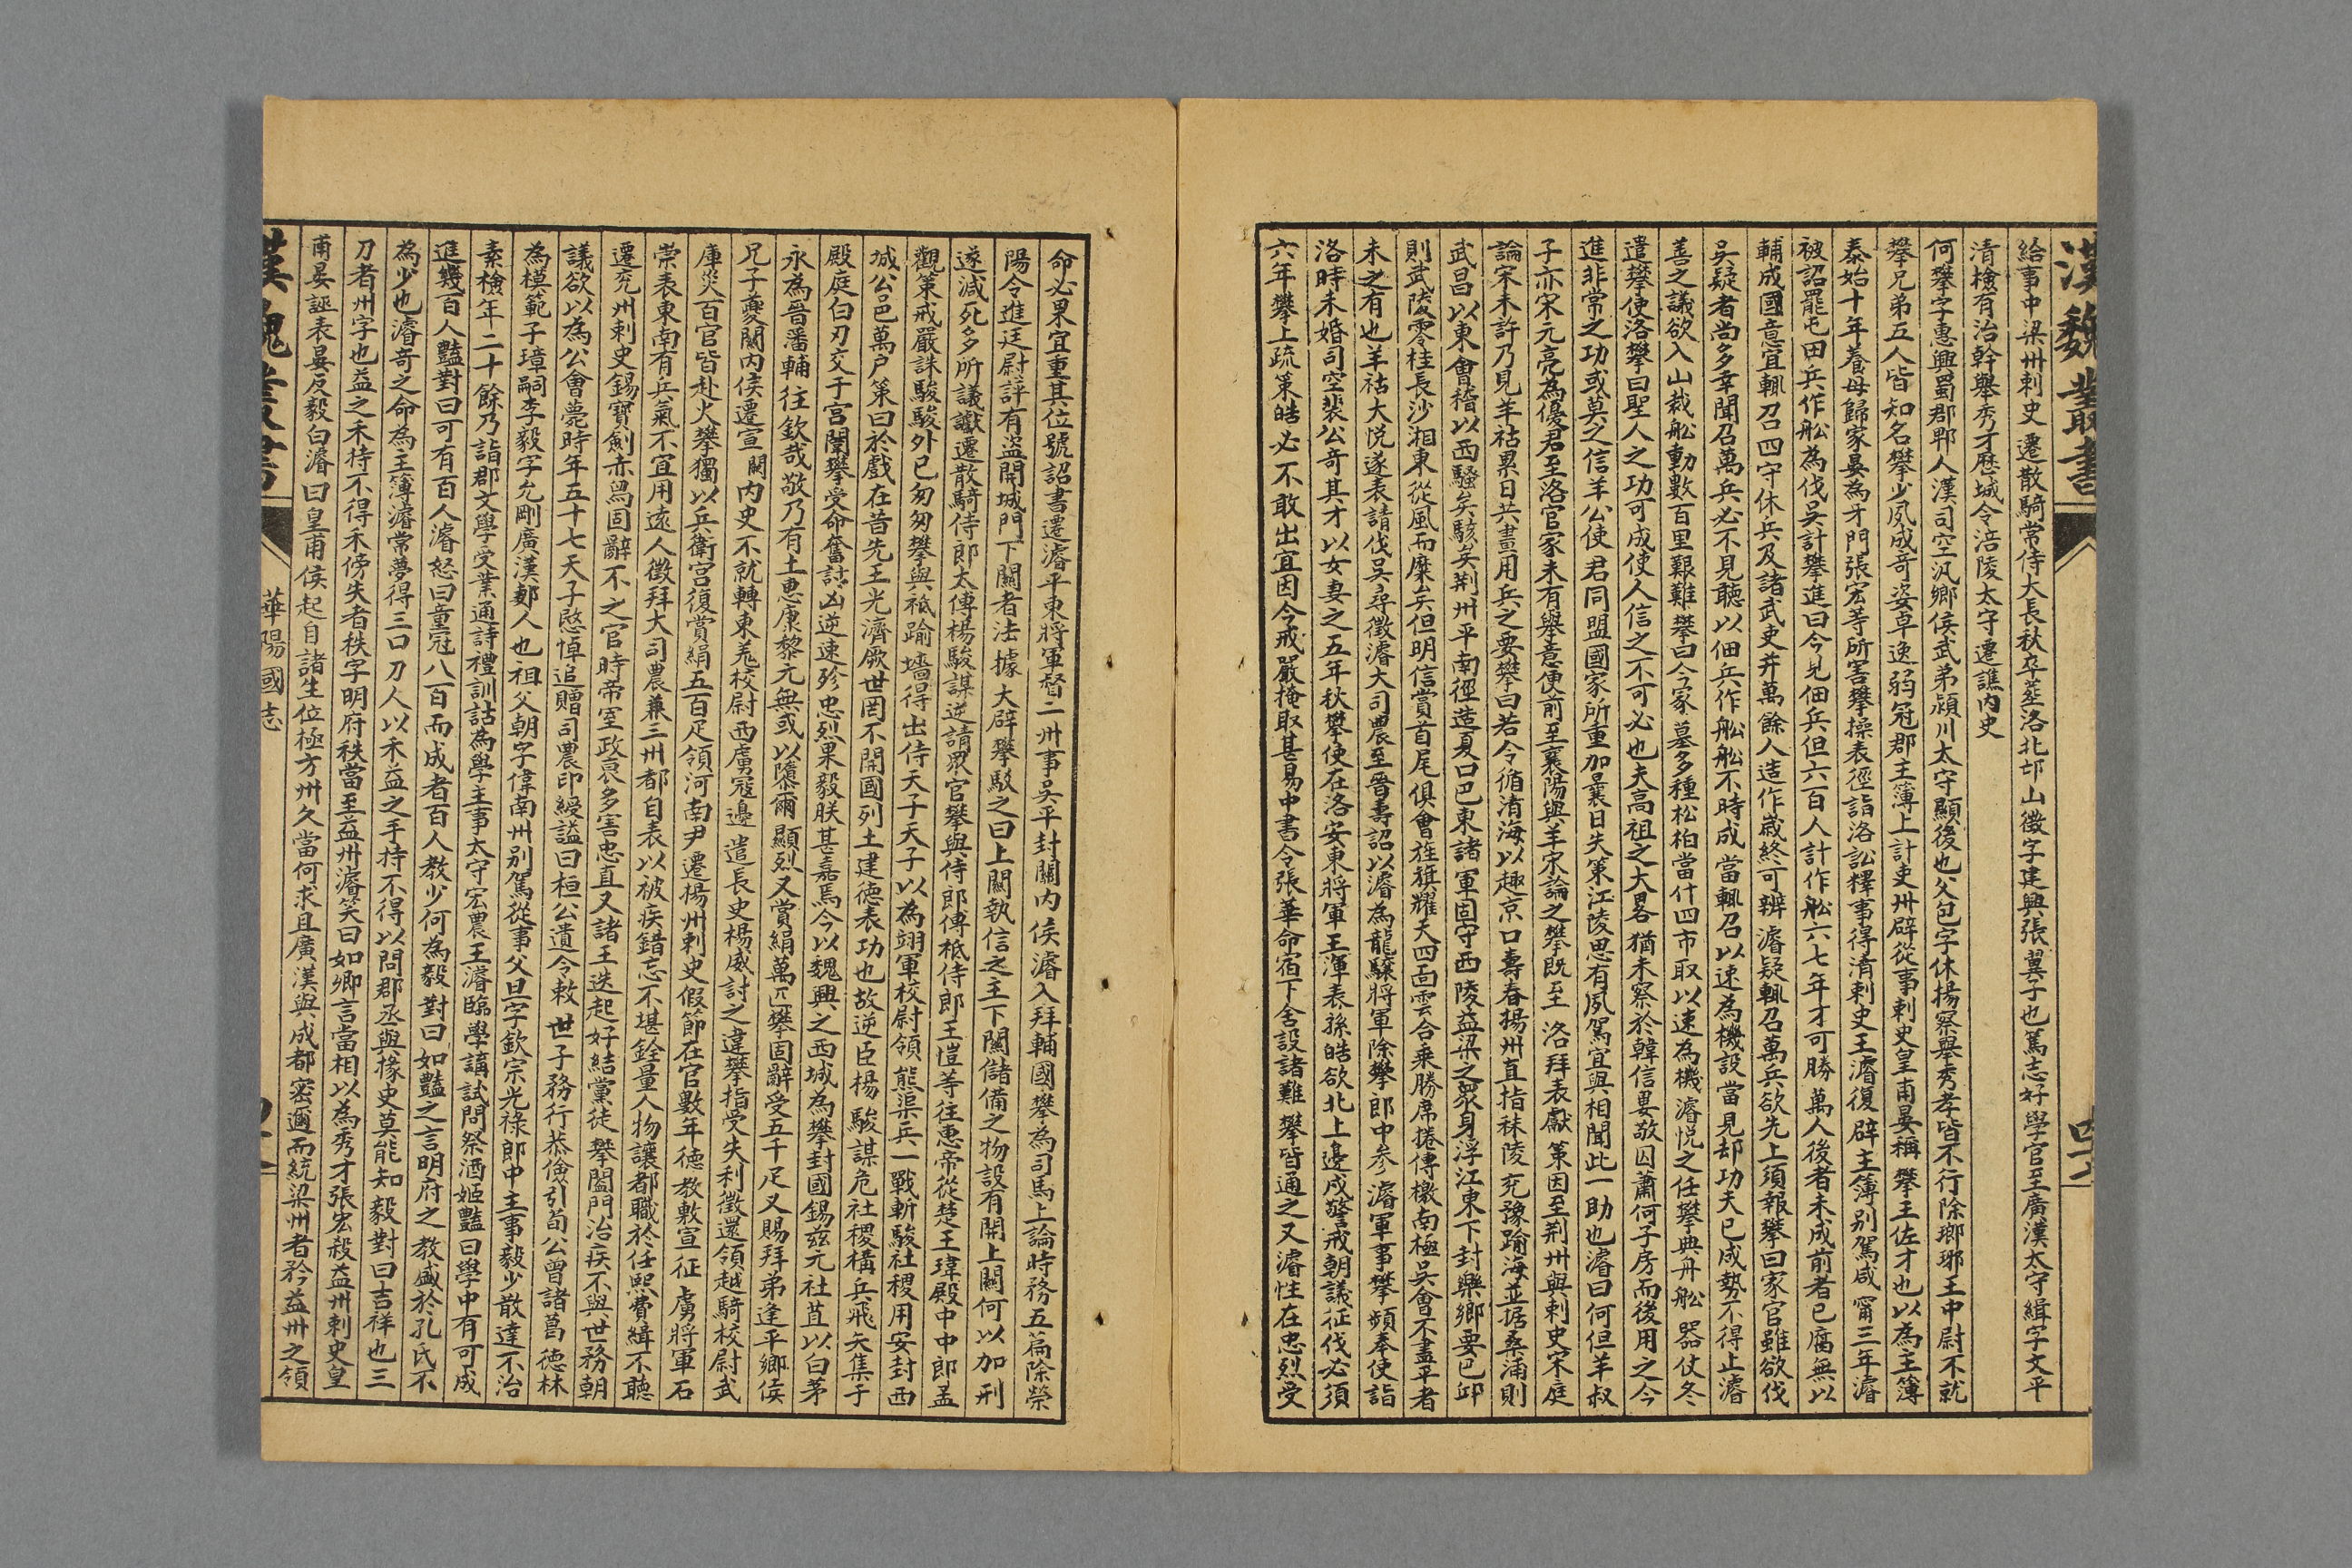 漢魏叢書
給事中梁州刺史遷散騎常侍大長秋卒葬洛北邙山徵字建興張翼子也篤志好學官至廣漢太守緝字文平
清檢有治幹舉秀才歷城令涪陵太守遷譙內史
何攀字惠興蜀郡郫人漢司空汎鄉侯武弟潁川太守顯後也父包字休揚察舉秀孝皆不行除瑯琊王中尉不就
攀兄弟五人皆知名攀少夙成奇姿卓逸弱冠郡主簿上計吏州辟從事刺史皇甫晏稱攀王佐才也以為主簿
泰始十年養母歸家晏為牙門張宏等所害攀操表徑詣洛訟釋事得淯刺史王濬復辟主簿别駕咸甯三年濬
被詔罷屯田兵作船為伐吳計攀進曰今見佃兵但六百人計作船六七年才可勝萬人後者未成前者已腐無以
輔成國意宜輒召四守休兵及諸武吏并萬餘人造作歲終可辨濬疑輒召萬兵欲先上須報攀曰家官雖欲伐
吳疑者尚多幸聞召萬兵必不見聽以佃兵作船船不時成當輒召以速為機設當見却功夫已成勢不得止濬
善之議欲入山裁船動數百里艱難攀曰今冢墓多種松柏當什四市取以速為機濬悅之任攀典舟船器仗冬
遣攀使洛攀曰聖人之功可成使人信之不可必也夫高祖之大畧猶未察於韓信婁敬囚蕭何子房而後用之今
進非常之功或莫之信羊公使君同盟國家所重加曩日失策江陵思有夙駕宜與相聞此一助也濬曰何但羊叔
子亦宋元亮為優君至洛官家未有舉意便前至襄陽與羊宋論之攀既至洛拜表獻策因至荆州與刺史宋庭
論宋未許乃見羊祜累日共畫用兵之要攀曰若令循淯海以趣京口壽春揚州直指秣陵兖豫踰海並据桑涌則
武昌以東會稽以西騷矣駭矣荆州平南徑造夏口巴東諸軍固守西陵益梁之眾身浮江東下封樂鄉要巴邱
則武陵零桂長沙湘東從風而糜矣但明信賞首尾俱會旌旗耀天四靣雲合乗勝席捲傳檄南極吳會不盡平者
未之有也羊祜大悦遂表請伐吳尋徵濬大司農至晉壽詔以濬為龍驤將軍除攀郎中参濬軍事攀頻奉使詣
洛時未婚司空裴公奇其才以女妻之五年秋攀使在洛安東將軍王渾表孫皓欲北上邊戍警戒朝議征伐必須
六年攀上疏策皓必不敢出宜因今戒嚴掩取甚易中書令張華命宿下舍設諸難攀皆通之又濬性在忠烈受
命必果宜重其位號詔書遷濬平東將軍督二州事吳平封關內侯濬入拜輔國攀為司馬上論時務五篇除滎
陽令進廷尉評有盜開城門下關者法據大辟攀駁之曰上關執信之主下關儲備之物設有開上關何以加刑
遂減死多所議讞遷散騎侍郎太傅楊駿謀逆請眾官攀與侍郎傅祗侍郎王愷等往惠帝從楚王瑋殿中中郎孟
觀策戒嚴誅駿駿外已匆匆攀與祗踰墻得出侍天子天子以為翊軍校尉領熊渠兵一戰斬駿社稷用安封西
城公邑萬户策曰於戲在昔先王光濟厥世罔不開國列土建德表功也故逆臣楊駿謀危社稷構兵飛矢集于
殿庭白刃交于宫闈攀受命奮討凶逆速殄忠烈果毅朕甚嘉焉今以魏興之西城為攀封國錫茲元社苴以白茅
永為晉藩輔往欽哉敬乃有土惠康黎元無或以隳爾顯烈又賞絹萬匹攀固辭受五千疋又賜拜弟逢平鄉侯
兄子夔關內侯遷宣闕內史不就轉東羌校尉西虜寇邊遣長史楊威討之違攀指受失利徵還領越騎校尉武
庫災百官皆赴火攀獨以兵衛宮復賞絹五百疋領河南尹遷楊州刺史假節在官數年德教敷宣征虜將軍石
崇表東南有兵氣不宜用遠人徵拜大司農兼三州都自表以被疾錯忘不堪銓量人物讓都職於任熙費緝不聽
遷兖州刺史錫寶劍赤舄固辭不之官時帝室政衰多害忠直又諸王迭起好結黨徒攀闔門治疾不與世務朝
議欲以為公會薨時年五十七天子愍悼追贈司農印綬謚曰桓公遺令敕世子務行恭儉引荀公曾諸葛德林
為模範子璋嗣李毅字允剛廣漢郪人也祖父朝字偉南州别駕從事父旦字欽宗光祿郎中主事毅少散達不治
素檢年二十餘乃詣郡文學受業通詩禮訓詁為學主事太守宏農王濬臨學講試問祭酒姬豔曰學中有可成
進幾百人豔對曰可有百人濬怒曰童冠八百而成者百人教少何為毅對曰如豔之言明府之教盛於孔氏不
為少也濬奇之命為主簿濬常夢得三口刀人以禾益之手持不得以問郡丞與掾史莫能知毅對曰吉祥也三
刀者州字也益之禾持不得禾傍失者秩字明府秩當至益州濬笑曰如卿言當相以為秀才張宏殺益州刺史皇
甫晏誣表晏反毅白濬曰皇甫侯起自諸生位極方州久當何求且廣漢與成都密邇而統梁州者矜益州之領
華陽國志